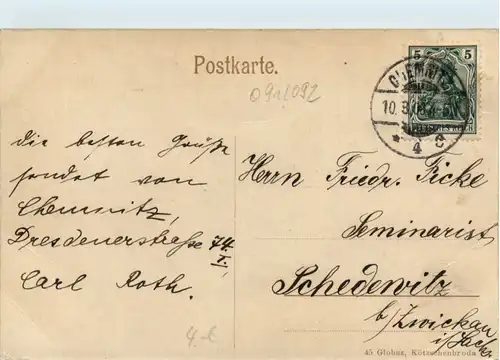 Postkarte.
091/092
5 5
CHEMNITZ
* 4 C
Die besten Grüße
sendet von
Chemnitz,
Dresdenerstraße 74.I.
Carl Roth.
Herrn Friedr. Ficke
Seminarist
Schedewitz
b/Zwickau
i/Sachs.
4.-E
45 Globus, Kötzschenbroda